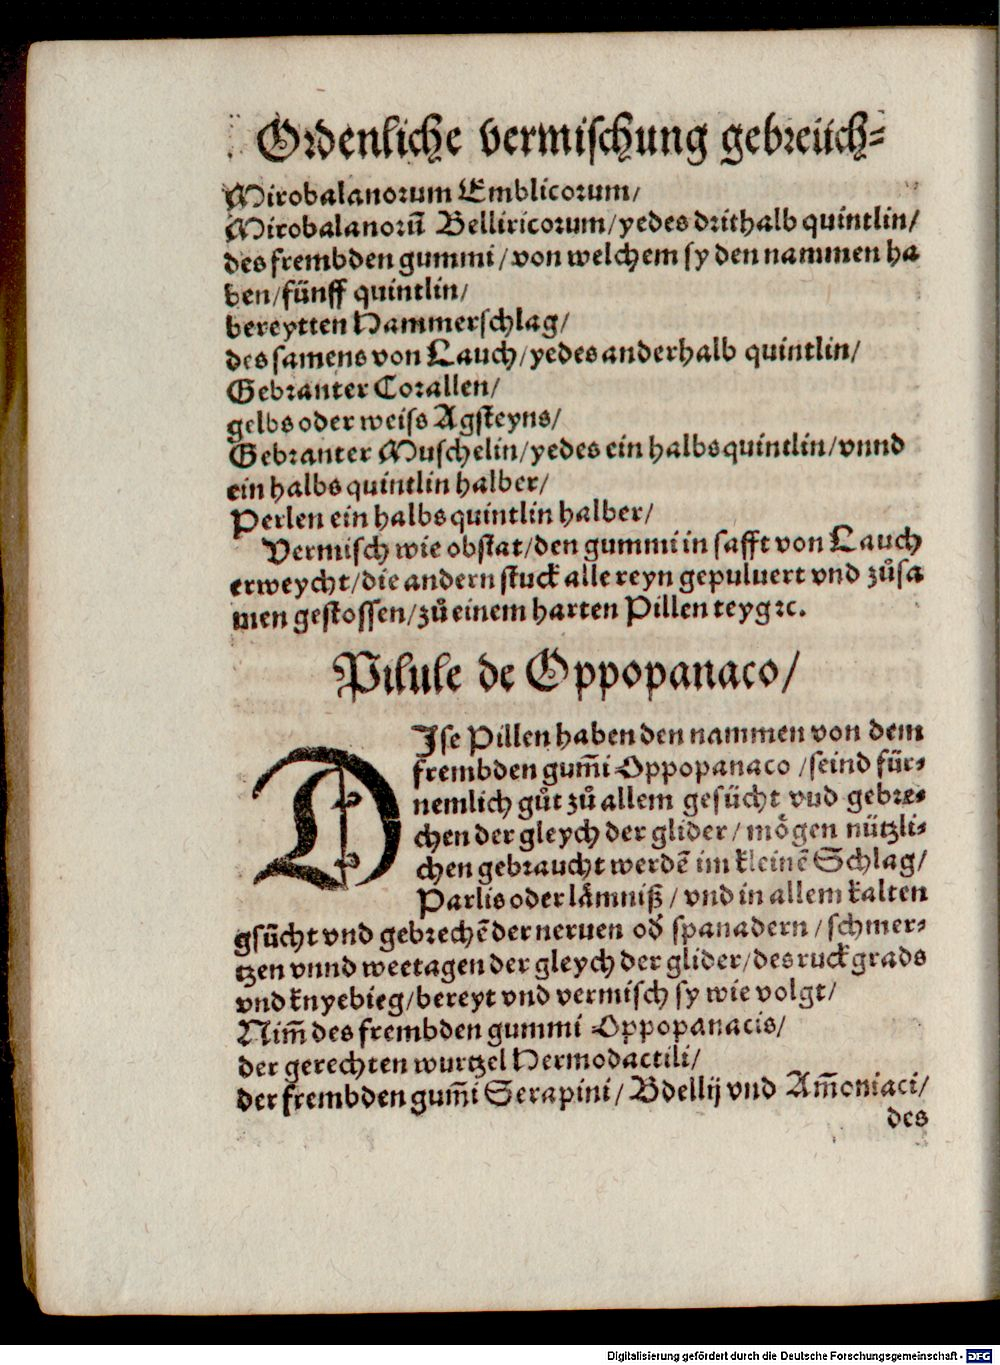 Ordenliche vermischung gebreüch⸗
Mirobalanorum Emblicorum/
Mirobalanorū Belliricorum/yedes drithalb quintlin/
des frembden gummi/von welchem sy den nammen ha
ben/fünff quintlin/
bereytten Hammerschlag/
des samens von Lauch/yedes anderhalb quintlin/
Gebranter Corallen/
gelbs oder weiss Agsteyns/
Gebranter Muschelin/yedes ein halbs quintlin/vnnd
ein halbs quintlin halber/
Perlen ein halbs quintlin halber/
Vermisch wie obstat/den gummi in safft von Lauch
erweycht/die andern stuck alle reyn gepuluert vnd zůsa
men gestossen/zů einem harten Pillen teyg ꝛc.
Pilule de Oppopanaco/
DIse Pillen haben den nammen von dem
frembden gum̄i Oppopanaco/seind für⸗
nemlich gůt zů allem gesücht vnd gebre⸗
chen der gleych der glider/mögen nützli⸗
chen gebraucht werdē im kleinē Schlag/
Parlis oder lämniß/vnd in allem kalten
gsücht vnd gebrechē der neruen oď spanadern/schmer⸗
tzen vnnd weetagen der gleych der glider/des ruckgrads
vnd knyebieg/bereyt vnd vermisch sy wie volgt/
Nim̄ des frembden gummi Oppopanacis/
der gerechten wurtzel Hermodactili/
der frembden gum̄i Serapini/Bdellij vnd Am̄oniaci/
des
Digitalisierung gefördert durch die Deutsche Forschungsgemeinschaft - DFG